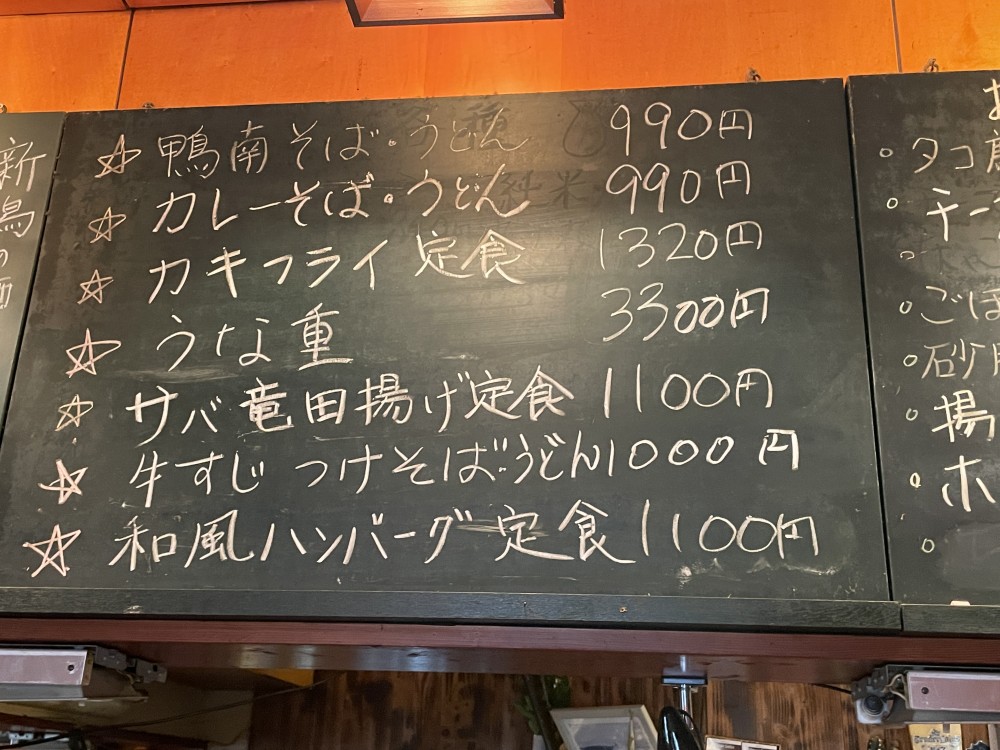 ☆ 鴨南そば・うどん 990円
☆ カレーそば・うどん 990円
☆ カキフライ定食 1320円
☆ うな重 3300円
☆ サバ竜田揚げ定食 1100円
☆ 牛すじつけそば・うどん 1000円
☆ 和風ハンバーグ定食 1100円
新
潟
の
タコ
チー
ごぼ
砂
揚
ホ